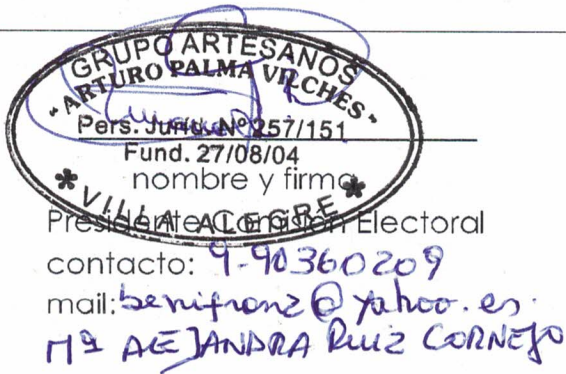 GRUPO ARTESANOS
"ARTURO PALMA VILCHES"
Pers. Jurid. Nº 257/151
Fund. 27/08/04
* VILLA ALEGRE *
nombre y firma
Presidente Comisión Electoral
contacto: 9-90360209
mail: benifronz@yahoo.es.
Mª ALEJANDRA RUIZ CORNEJO